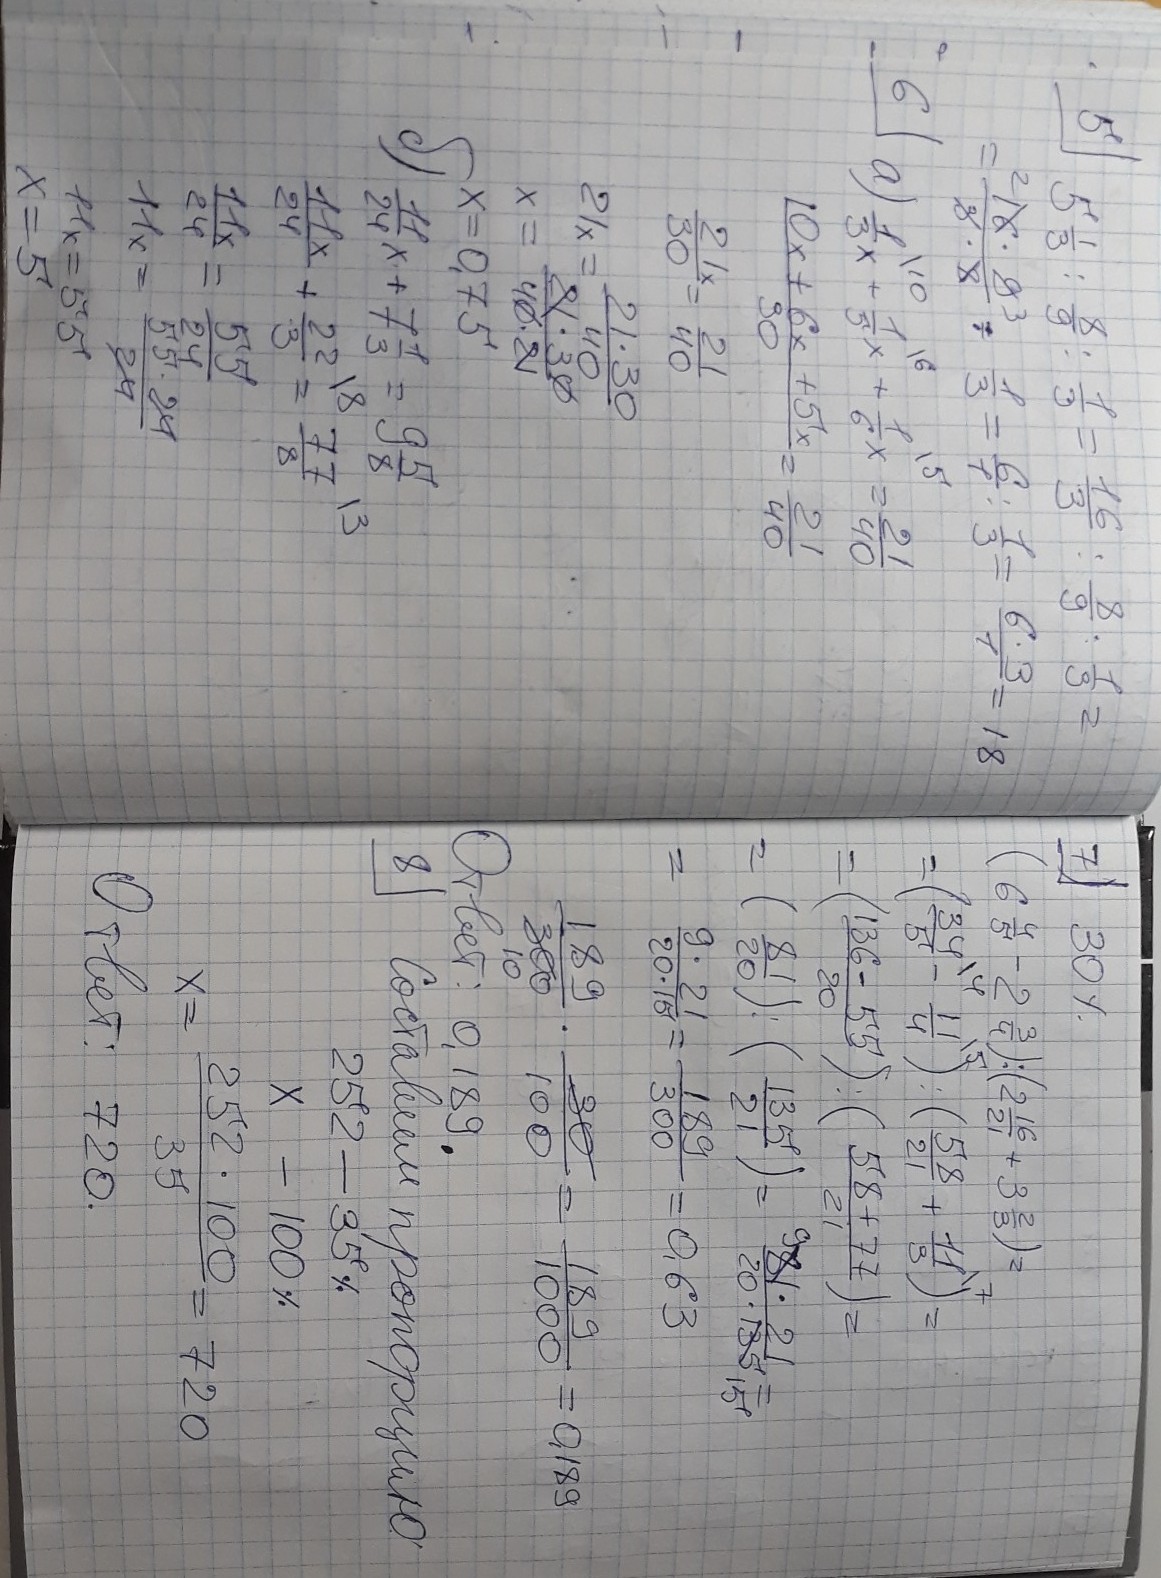 5
5 1/3 : 8/9 : 1/3 = 16/3 : 8/9 : 1/3 =
= 16·9/3·8 : 1/3 = 6/1 : 1/3 = 6·3/1 = 18
6
а) 1/3 x \10 + 1/5 x \6 + 1/6 x \5 = 21/40
10x + 6x + 5x/30 = 21/40
21x/30 = 21/40
21x = 21·30/40
x = 21·30/40·21
x = 0,75
б) 11/24 x + 7 1/3 = 9 5/8
11x/24 + 22/3 \8 = 77/8 \3
11x/24 = 55/24
11x = 55·24/24
11x = 55
x = 5
7 30%
(6 4/5 - 2 3/4) : (2 16/21 + 3 2/3) =
= (34/5 \4 - 11/4 \5) : (58/21 + 11/3 \7) =
= (136 - 55/20) : (58 + 77/21) =
= (81/20) : (135/21) = 81·21/20·135 =
= 9·21/20·15 = 189/300 = 0,63
189/300 · 30/100 = 189/1000 = 0,189
Ответ: 0,189.
8 Составим пропорцию
252 — 35%
x — 100%
x = 252·100/35 = 720
Ответ: 720.